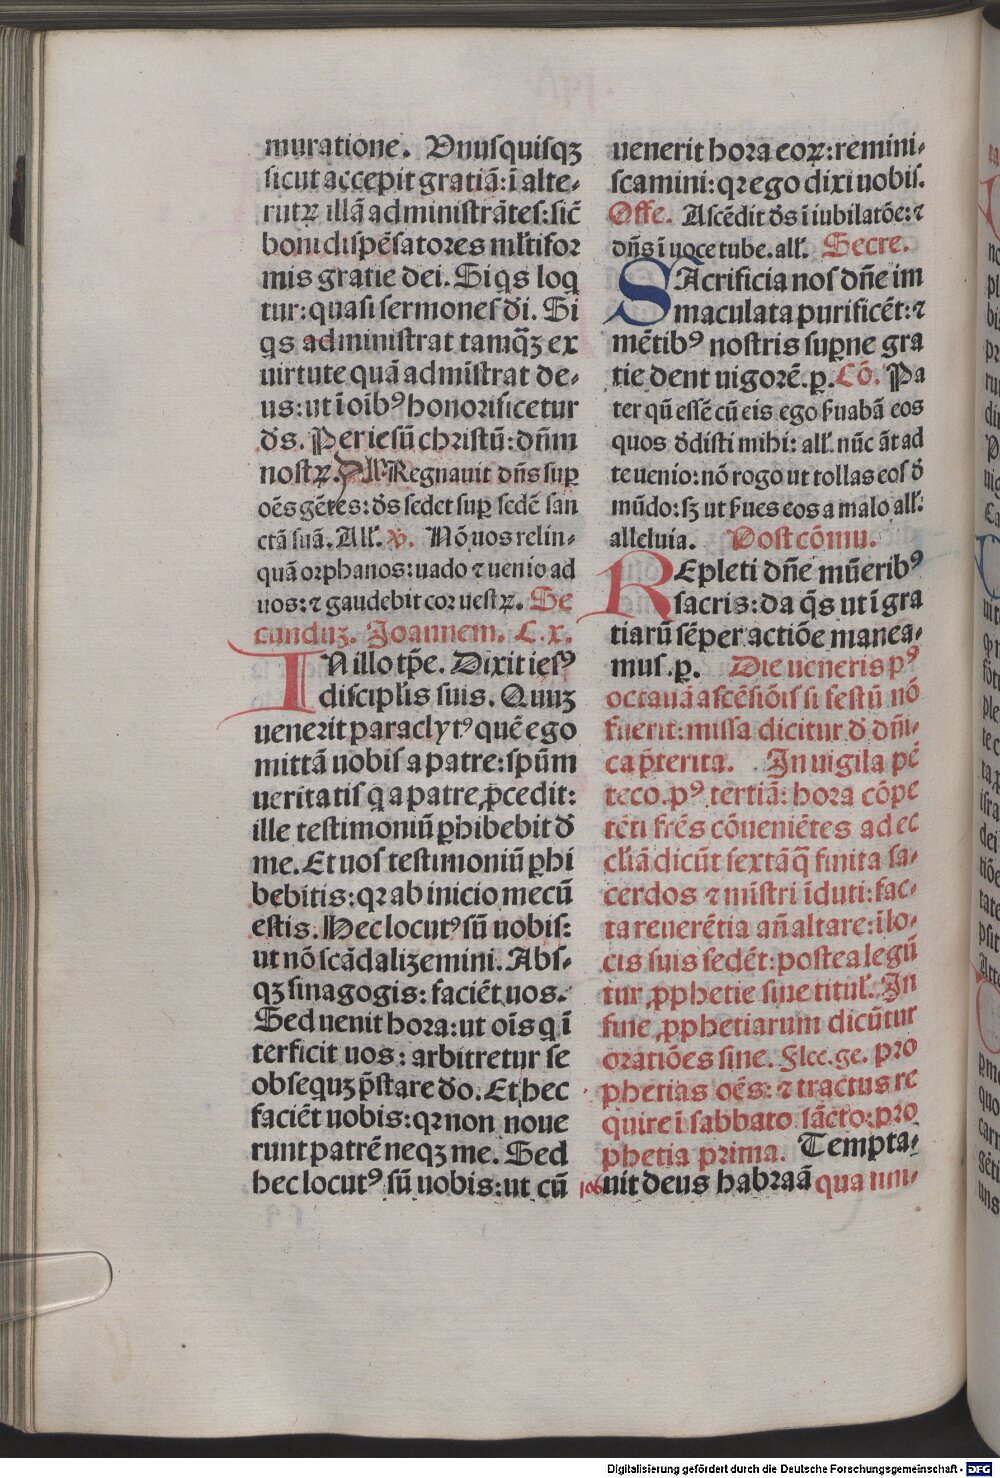 muratione. Vnusquisqꝫ
sicut accepit gratiã: ĩ alte⸗
rutꝝ illã administrãtes: sic̃
boni dispẽsatores ml̃tifor
mis gratie dei. Siqs loq̃
tur: quasi sermones d̃i. Si
qs administrat tamq̃ꝫ ex
uirtute quã admĩstrat de⸗
us: ut ĩ oĩbꝰ honorificetur
d̃s. Per iesũ christũ: dñm
nostꝝ. All'. Regnauit dñs suꝑ
oẽs gẽtes: d̃s sedet suꝑ sedẽ san
ctã suã. All'. ꝟ. Nõ uos relin⸗
quã orphanos: uado ⁊ uenio ad
uos: ⁊ gaudebit cor uestꝝ. Se
cunduꝫ. Joannem. C. x.
IN illo tp̃e. Dixit iesꝰ
discipl̃is suis. Quuꝫ
uenerit paraclytꝰ quẽ ego
mittã uobis a patre: spũm
ueritatis q̃ a patre ꝓcedit:
ille testimoniũ ꝑhibebit d̃
me. Et uos testimoniũ ꝑhi
bebitis: qꝛ ab inicio mecũ
estis. Hec locutꝰ sũ uobis:
ut nõ scãdalizemini. Abs⸗
qꝫ sinagogis: faciẽt uos.
Sed uenit hora: ut oĩs q̃ ĩ
terficit uos: arbitretur se
obsequꝫ p̃stare d̃o. Et hec
faciẽt uobis: qꝛ non noue
runt patrẽ neqꝫ me. Sed
hec locutꝰ sũ uobis: ut cũ
uenerit hora eoꝝ: remini⸗
scamini: qꝛ ego dixi uobis.
Offe. Ascẽdit d̃s ĩ iubilatõe: ⁊
dñs ĩ uoce tube. all'. Secre.
SAcrificia nos dñe im
maculata purificẽt: ⁊
mẽtibꝰ nostris suꝑne gra
tie dent uigorẽ. ꝑ. Cõ. Pa
ter qũ essẽ cũ eis ego s̃uabã eos
quos d̃disti mihi: all'. nũc ãt ad
te uenio: nõ rogo ut tollas eos d̃
mũdo: sꝫ ut s̃ues eos a malo all'.
alleluia. Postcõmu.
REpleti dñe mũeribꝰ
sacris: da q̃s ut ĩ gra
tiarũ sẽper actiõe manea⸗
mus. ꝑ. Die ueneris pꝰ
octauã ascẽsiõis si festũ nõ
fuerit: missa dicitur d̃ dñi⸗
ca p̃terita. In uigila pẽ
teco. pꝰ tertiã: hora cõpe
tẽti frẽs cõueniẽtes ad ec
cl̃iã dicũt sextã q̃ finita sa⸗
cerdos ⁊ mĩstri ĩduti: fac⸗
ta reuerẽtia añ altare: ĩ lo⸗
cis suis sedẽt: postea legũ
tur ꝓphetie sine titul'. In
fine ꝓphetiarum dicũtur
oratiões sine. Flec. ge. pro
phetias oẽs: ⁊ tractus re
quire ĩ sabbato sãcto: pro
phetia prima. Tempta⸗
uit deus habraã qua um⸗